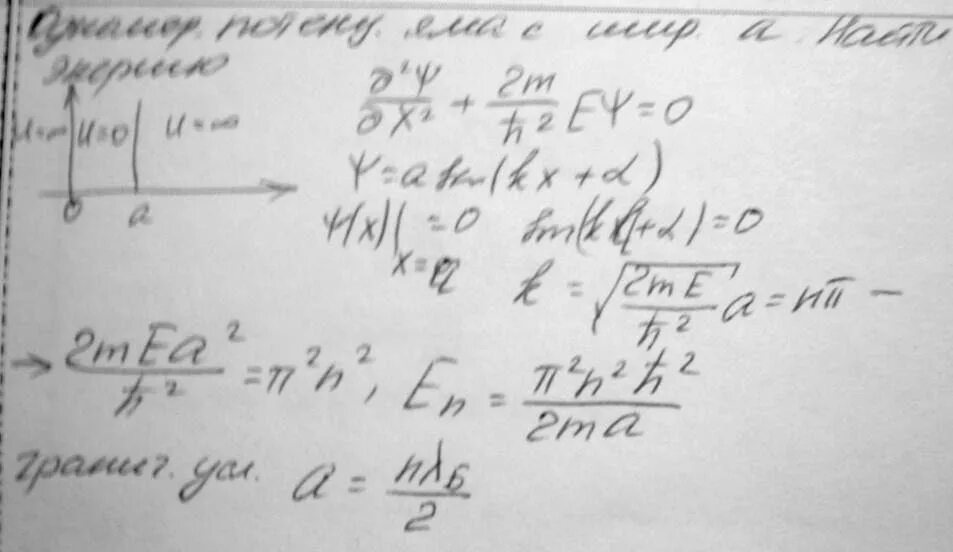 Одномер. потенц. яма с шир. а. Найти
энергию
U=∞ U=0 U=∞
0 a
∂²Ψ/∂X² + 2m/ħ² EΨ = 0
Ψ = a sin(kx + α)
Ψ(x)| x=a = 0 sin(kx + α) = 0
k = √(2mE/ħ²) a = nπ –
→ 2mEa²/ħ² = π²n², Eₙ = π²n²ħ²/2ma
гранич. усл. a = nλ_Б/2